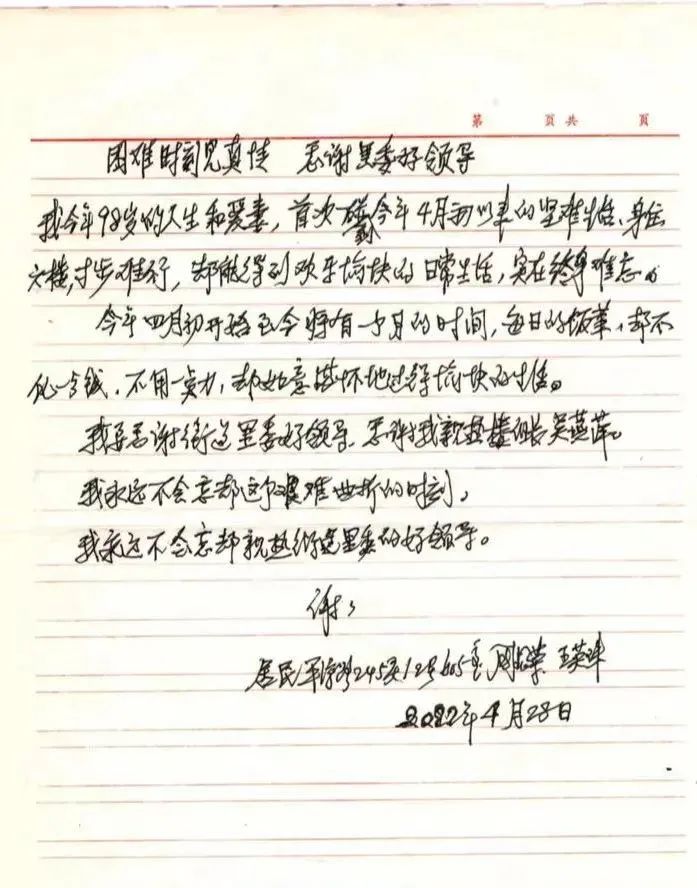 第 页共 页
困难时刻见真情 感谢里委好领导
我今年98岁的人生和爱妻,首次碰到今年4月初以来的坚难生活,身住
六楼,寸步难行,却能得到欢乐愉快的日常生活,实在终身难忘。
今年四月初开始至今将有一个月的时间,每日的饭菜,却不
化一分钱,不用一点力,却如意满怀地过得愉快的生活。
我要感谢街道里委好领导,感谢我亲热楼组长吴燕萍。
我永远不会忘却这个艰难曲折的时刻。
我永远不会忘却亲热街道里委的好领导。
谢谢
居民 245弄12号605室 王英
2022年4月28日